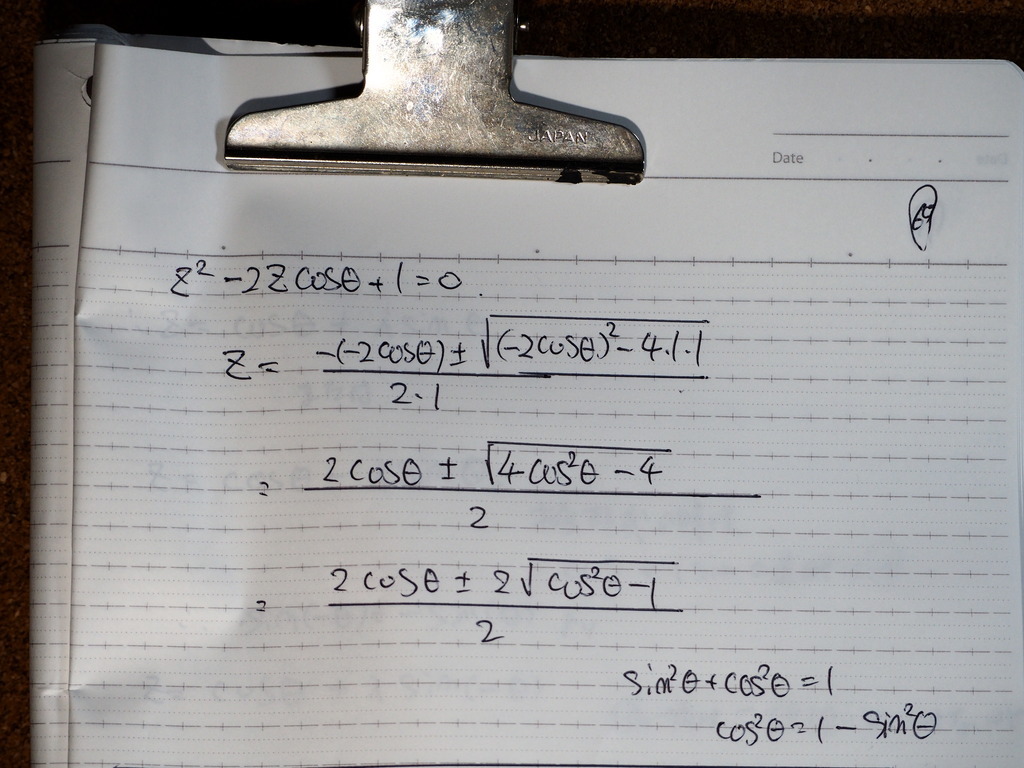 JAPAN
Date
z² - 2z cosθ + 1 = 0.
z = (-(-2cosθ) ± √((-2cosθ)² - 4·1·1)) / (2·1)
= (2cosθ ± √(4cos²θ - 4)) / 2
= (2cosθ ± 2√(cos²θ - 1)) / 2
sin²θ + cos²θ = 1
cos²θ = 1 - sin²θ